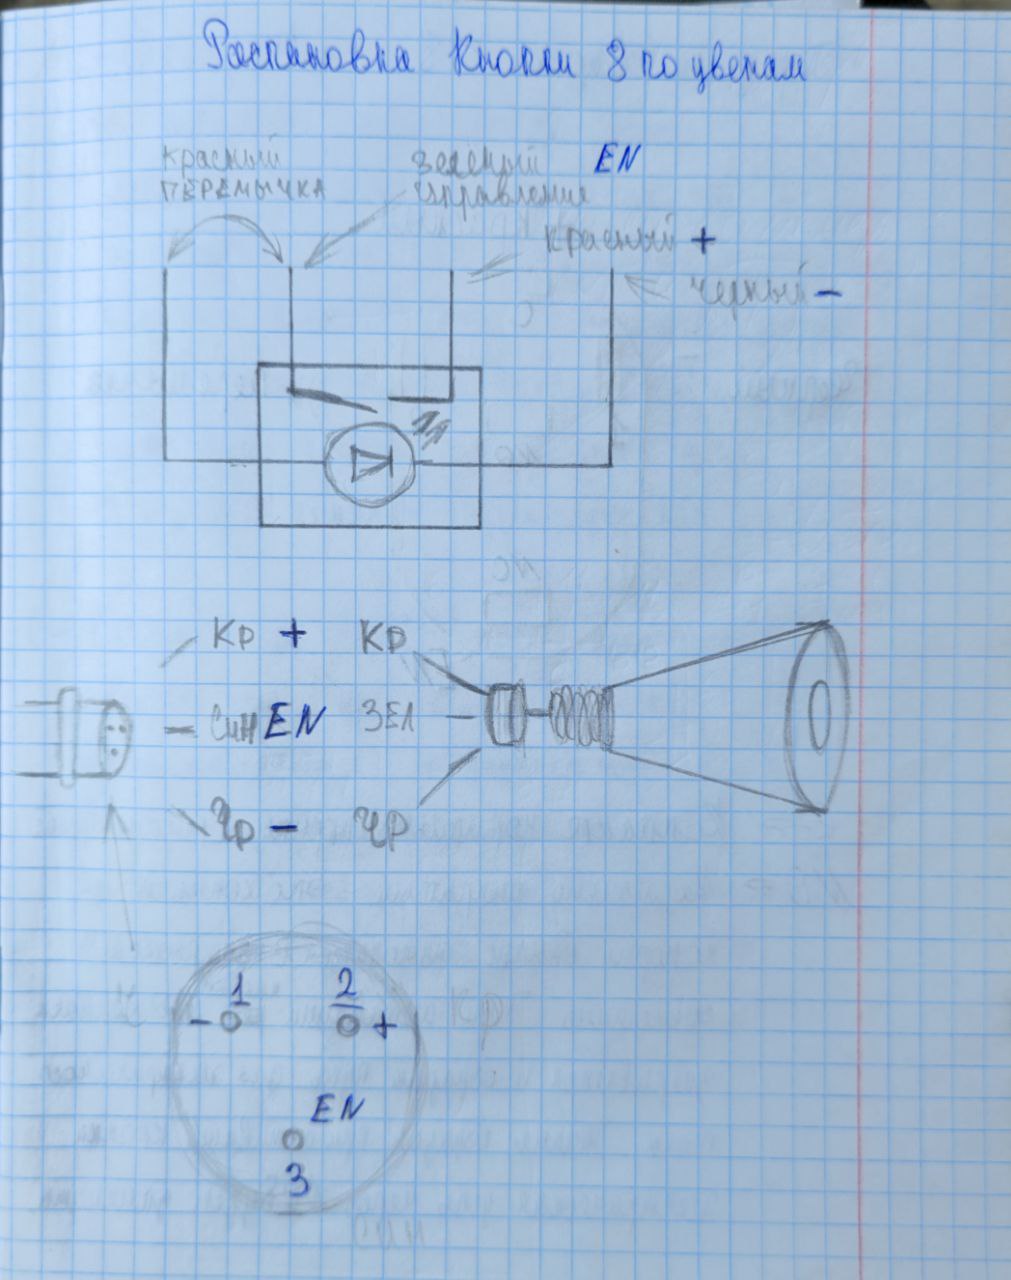 Распиновка Кнопки 8 по цветам
красный
ПЕРЕМЫЧКА
зеленый EN
управление
красный +
черный -
Кр + КР
Син EN ЗЕЛ
Чр - ЧР
1 2
- +
EN
3